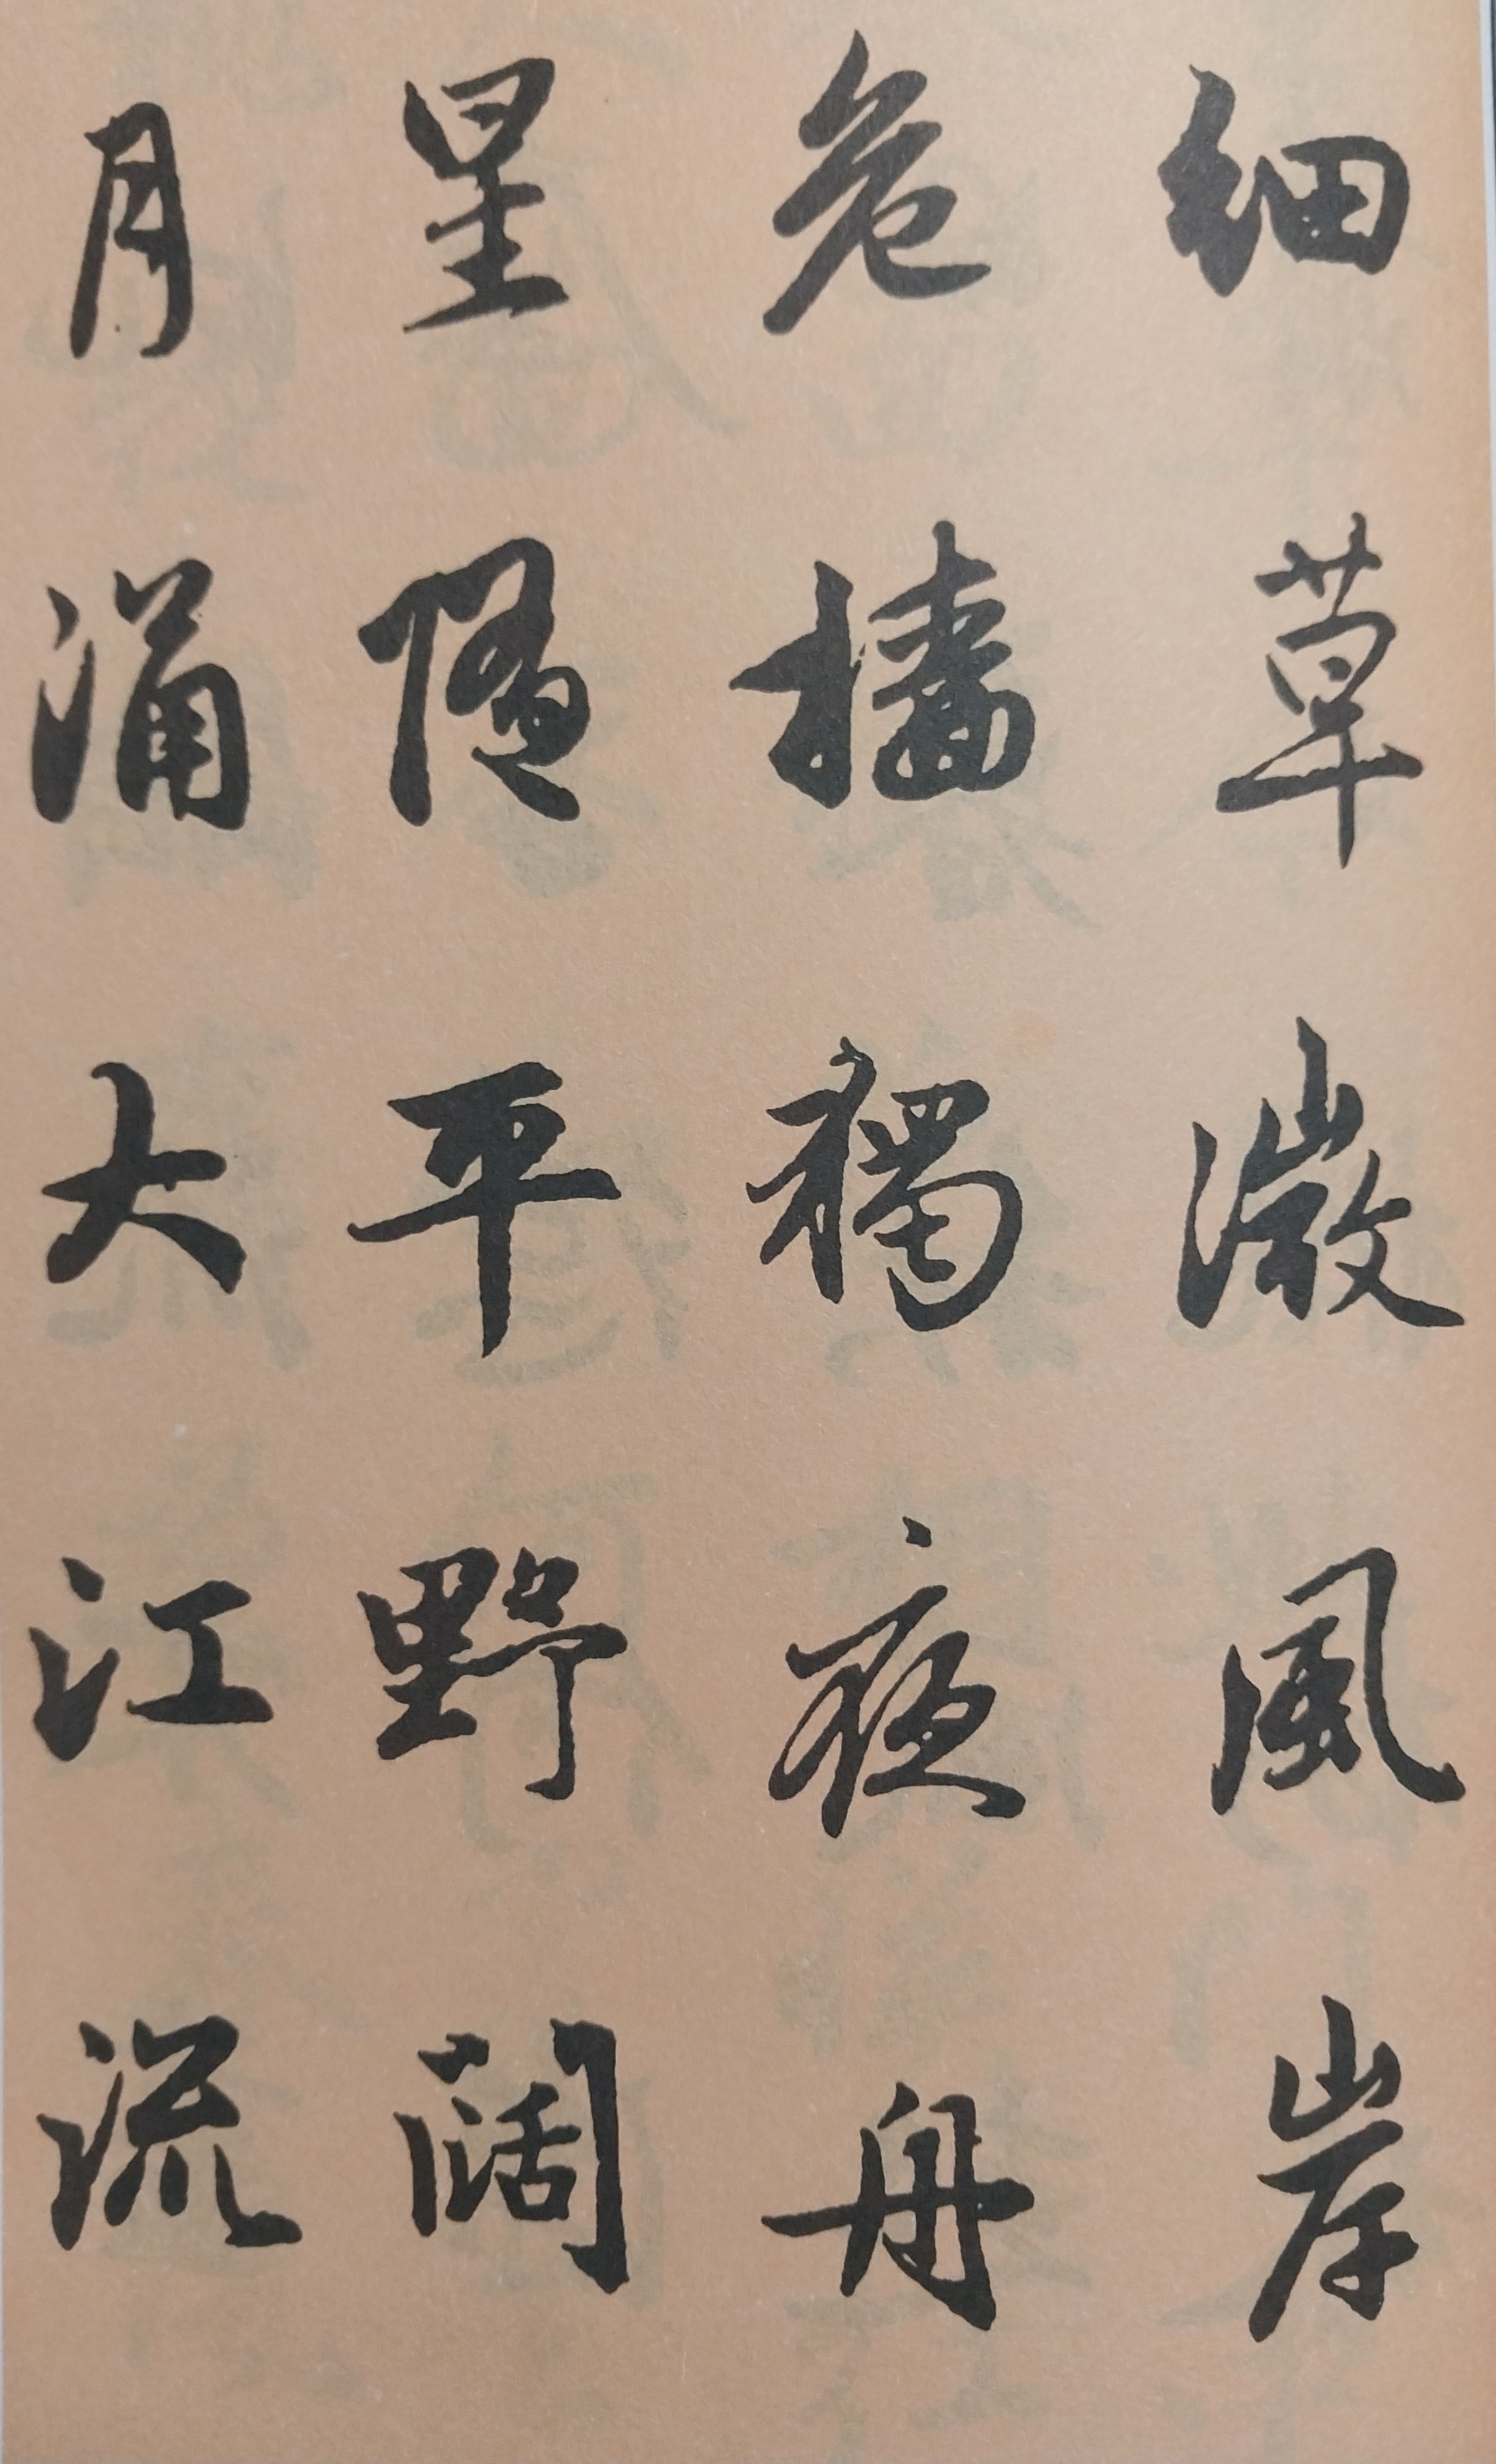 細草微風岸
危檣獨夜舟
星隨平野闊
月涌大江流